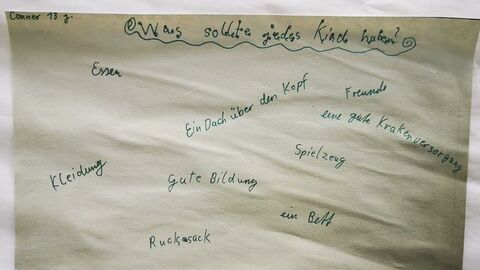 Connor 13 J.
Was sollte jedes Kind haben?
Essen
Ein Dach über den Kopf
Freunde
eine gute Krakenversorgung
Spielzeug
Kleidung
gute Bildung
ein Bett
Rucksack